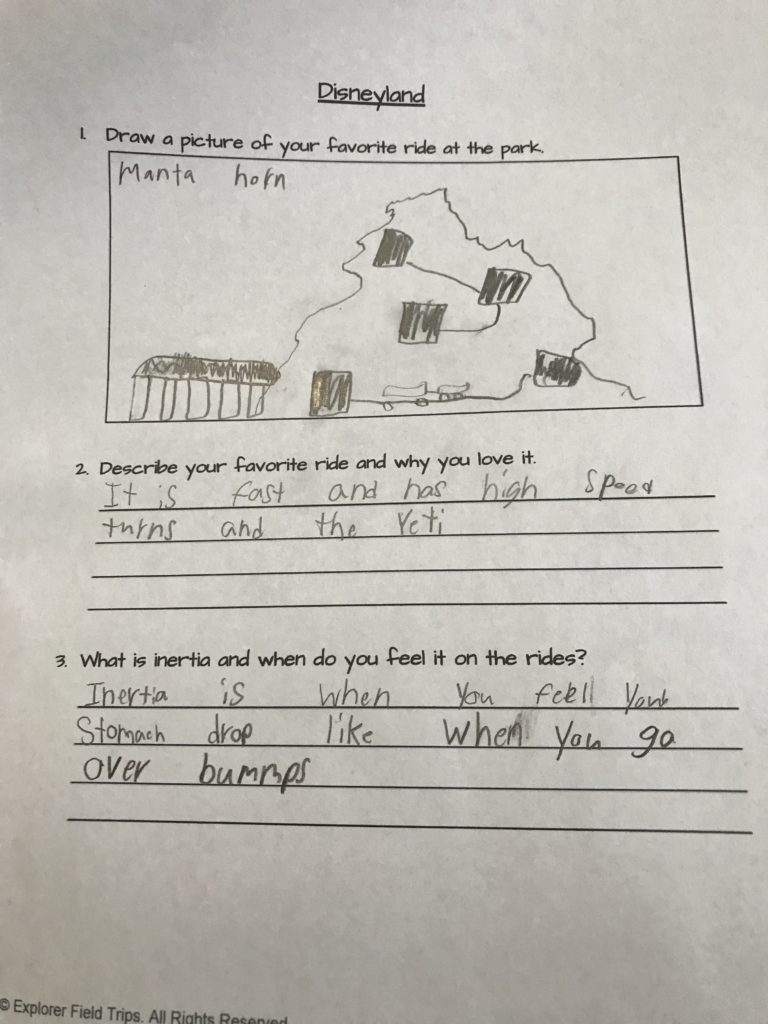 Disneyland
1. Draw a picture of your favorite ride at the park.
Manta horn
2. Describe your favorite ride and why you love it.
It is fast and has high speed
turns and the Yeti
3. What is inertia and when do you feel it on the rides?
Inertia is when you feell your
Stomach drop like when you go
over bummps
© Explorer Field Trips. All Rights Reserved